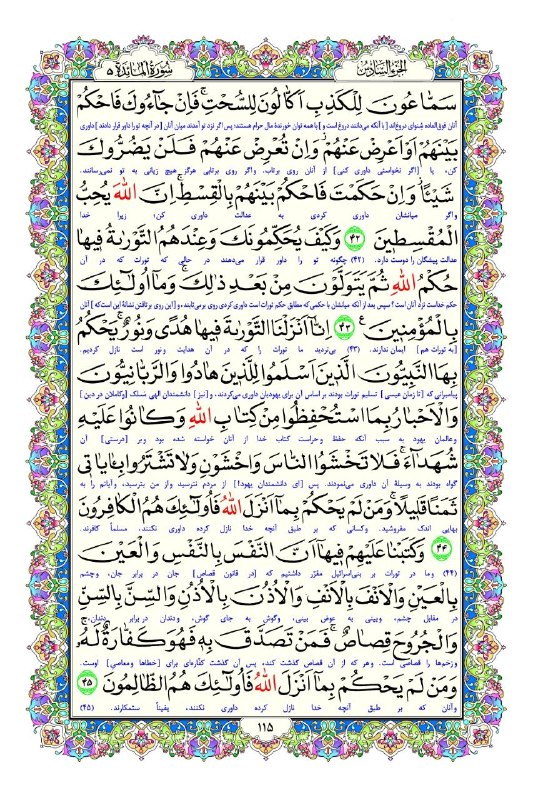 الجزء السادس
سورة المائدة ۵
سَمَّاعُونَ لِلْكَذِبِ اَكَّالُونَ لِلسُّحْتِ فَاِنْ جَآءُوكَ فَاحْكُمْ
آنان فوق‌العاده شنوای دروغ‌اند [با آنکه می‌دانند دروغ است و] با همه توان خورندۀ مال حرام هستند؛ پس اگر نزد تو آمدند میان آنان [در آنچه تو را داور قرار دادند] داوری
بَيْنَهُمْ اَوْ اَعْرِضْ عَنْهُمْ وَاِنْ تُعْرِضْ عَنْهُمْ فَلَنْ يَضُرُّوكَ
کن، یا [اگر نخواستی داوری کنی] از آنان روی برتاب. واگر روی برتابی هرگز هیچ زیانی به تو نمی‌رسانند.
شَيْئًا وَاِنْ حَكَمْتَ فَاحْكُمْ بَيْنَهُمْ بِالْقِسْطِ اِنَّ اللهَ يُحِبُّ
واگر میانشان داوری کردی به عدالت داوری کن؛ زیرا خدا
الْمُقْسِطِينَ ۴۲ وَكَيْفَ يُحَكِّمُونَكَ وَعِنْدَهُمُ التَّوْرٰىةُ فِيهَا
عدالت پیشگان را دوست دارد. (۴۲) چگونه تو را داور قرار می‌دهند در حالی که تورات که در آن
حُكْمُ اللهِ ثُمَّ يَتَوَلَّوْنَ مِنْ بَعْدِ ذٰلِكَ وَمَا اُولٰٓئِكَ
حکم خداست نزد آنان است؟ سپس بعد از آنکه میانشان با حکمی که مطابق حکم تورات است داوری کردی روی برمی‌تابند، و [این روی برتافتن نشانۀ این است که] آنان
بِالْمُؤْمِنِينَ ۴۳ اِنَّآ اَنْزَلْنَا التَّوْرٰىةَ فِيهَا هُدًى وَنُورٌ يَحْكُمُ
[به تورات هم] ایمان ندارند. (۴۳) بی‌تردید ما تورات را که در آن هدایت و نور است نازل کردیم.
بِهَا النَّبِيُّونَ الَّذِينَ اَسْلَمُوا لِلَّذِينَ هَادُوا وَالرَّبَّانِيُّونَ
پیامبرانی که [تا زمان عیسی] تسلیم تورات بودند بر اساس آن برای یهودیان داوری می‌کردند، و [نیز] دانشمندان الهی مسلک [وکاملان در دین]
وَالْاَحْبَارُ بِمَا اسْتُحْفِظُوا مِنْ كِتَابِ اللهِ وَكَانُوا عَلَيْهِ
وعالمان یهود به سبب آنکه حفظ وحراست کتاب خدا از آنان خواسته شده بود وبر [درستی] آن
شُهَدَآءَ فَلَا تَخْشَوُا النَّاسَ وَاخْشَوْنِ وَلَا تَشْتَرُوا بِاٰيَاتِي
گواه بودند به وسیلۀ آن داوری می‌نمودند. پس [ای دانشمندان یهود!] از مردم نترسید واز من بترسید، وآیاتم را به
ثَمَنًا قَلِيلًا وَمَنْ لَمْ يَحْكُمْ بِمَآ اَنْزَلَ اللهُ فَاُولٰٓئِكَ هُمُ الْكَافِرُونَ
بهایی اندک مفروشید. وکسانی که بر طبق آنچه خدا نازل کرده داوری نکنند، مسلماً کافرند.
۴۴ وَكَتَبْنَا عَلَيْهِمْ فِيهَآ اَنَّ النَّفْسَ بِالنَّفْسِ وَالْعَيْنَ
(۴۴) وما در تورات بر بنی‌اسرائیل مقرّر داشتیم که [در قانون قصاص] جان در برابر جان، وچشم
بِالْعَيْنِ وَالْاَنْفَ بِالْاَنْفِ وَالْاُذُنَ بِالْاُذُنِ وَالسِّنَّ بِالسِّنِّ
در مقابل چشم، وبینی به عوض بینی، وگوش به جای گوش، ودندان در برابر دندان،
وَالْجُرُوحَ قِصَاصٌ فَمَنْ تَصَدَّقَ بِهٖ فَهُوَ كَفَّارَةٌ لَهُ
وزخم‌ها را قصاصی است. وهر که از آن قصاص گذشت کند، پس آن گذشت کفّاره‌ای برای [خطاها ومعاصی] اوست.
وَمَنْ لَمْ يَحْكُمْ بِمَآ اَنْزَلَ اللهُ فَاُولٰٓئِكَ هُمُ الظَّالِمُونَ ۴۵
وآنان که بر طبق آنچه خدا نازل کرده داوری نکنند، یقیناً ستمکارند. (۴۵)
۱۱۵